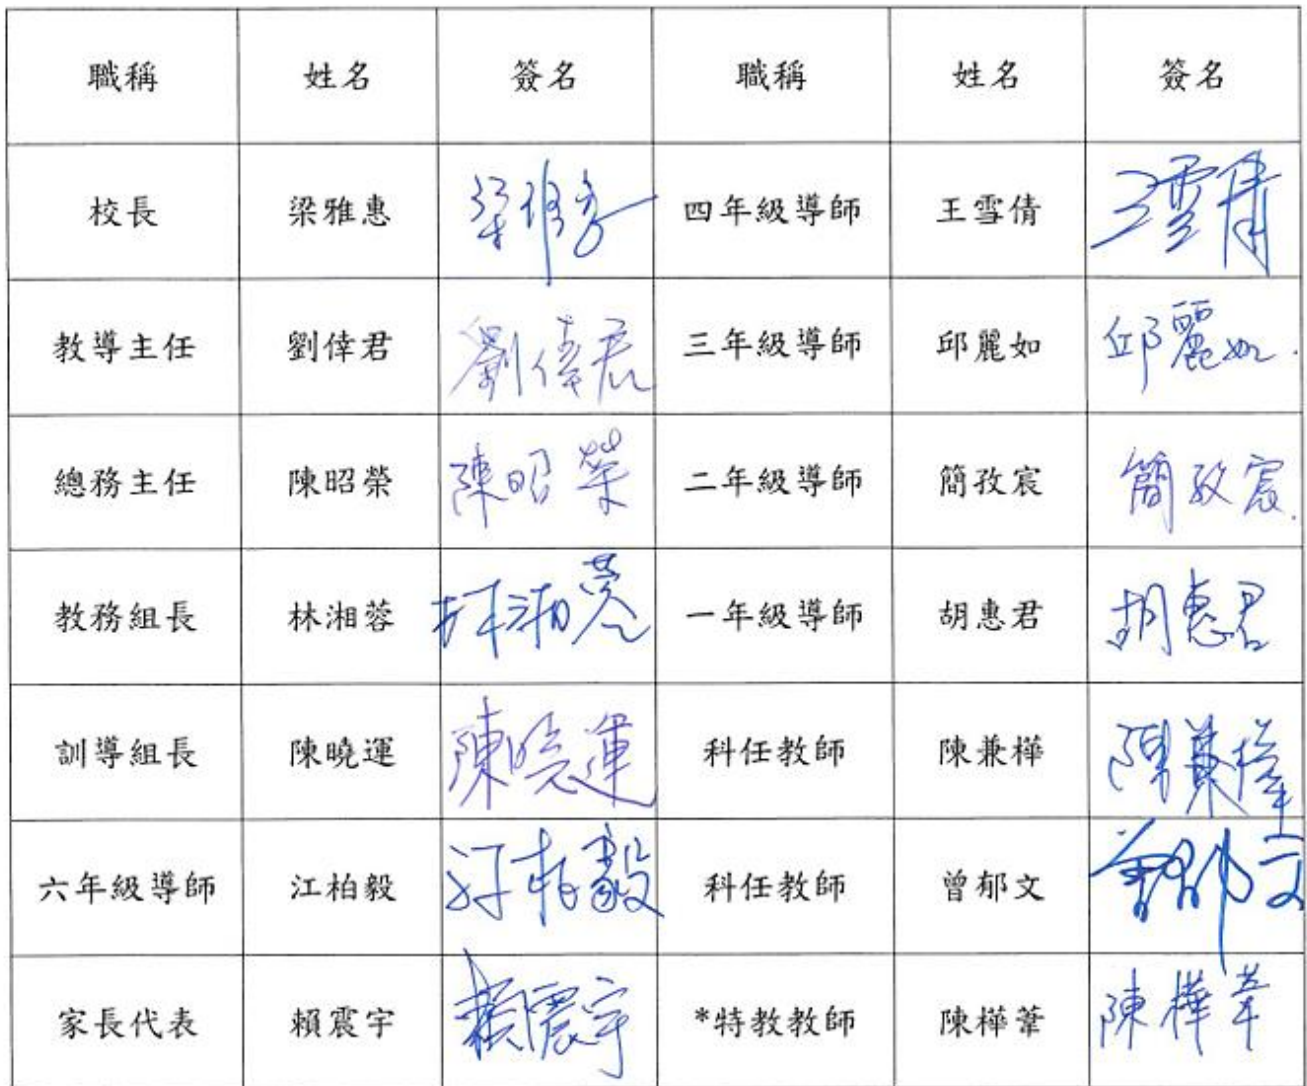 職稱 姓名 簽名 職稱 姓名 簽名
校長 梁雅惠 梁雅惠 四年級導師 王雪倩 王雪倩
教導主任 劉倖君 劉倖君 三年級導師 邱麗如 邱麗如.
總務主任 陳昭榮 陳昭榮 二年級導師 簡孜宸 簡孜宸.
教務組長 林湘蓉 林湘蓉 一年級導師 胡惠君 胡惠君
訓導組長 陳曉運 陳曉運 科任教師 陳兼樺 陳兼樺
六年級導師 江柏毅 江柏毅 科任教師 曾郁文 曾郁文
家長代表 賴震宇 賴震宇 *特教教師 陳樺葦 陳樺葦